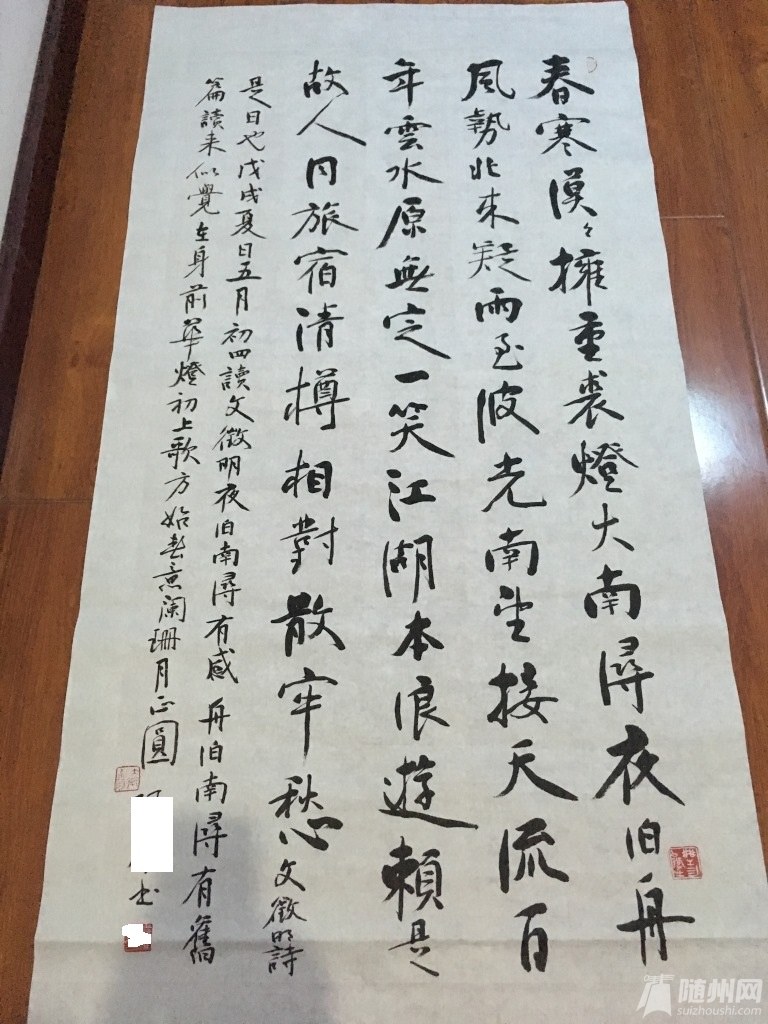 春寒漠々擁重裘燈火南潯夜泊舟
風勢北来疑雨至波光南望接天流百
年雲水原無定一笑江湖本浪遊賴是
故人同旅宿清樽相對散牢愁文徵明詩
是日也戊戌夏日五月初四讀文徵明夜泊南潯有感舟泊南潯有舊
篇讀来似覺在身前華燈初上歌方始春意阑珊月正圓
书
随州网
suizhoushi.com